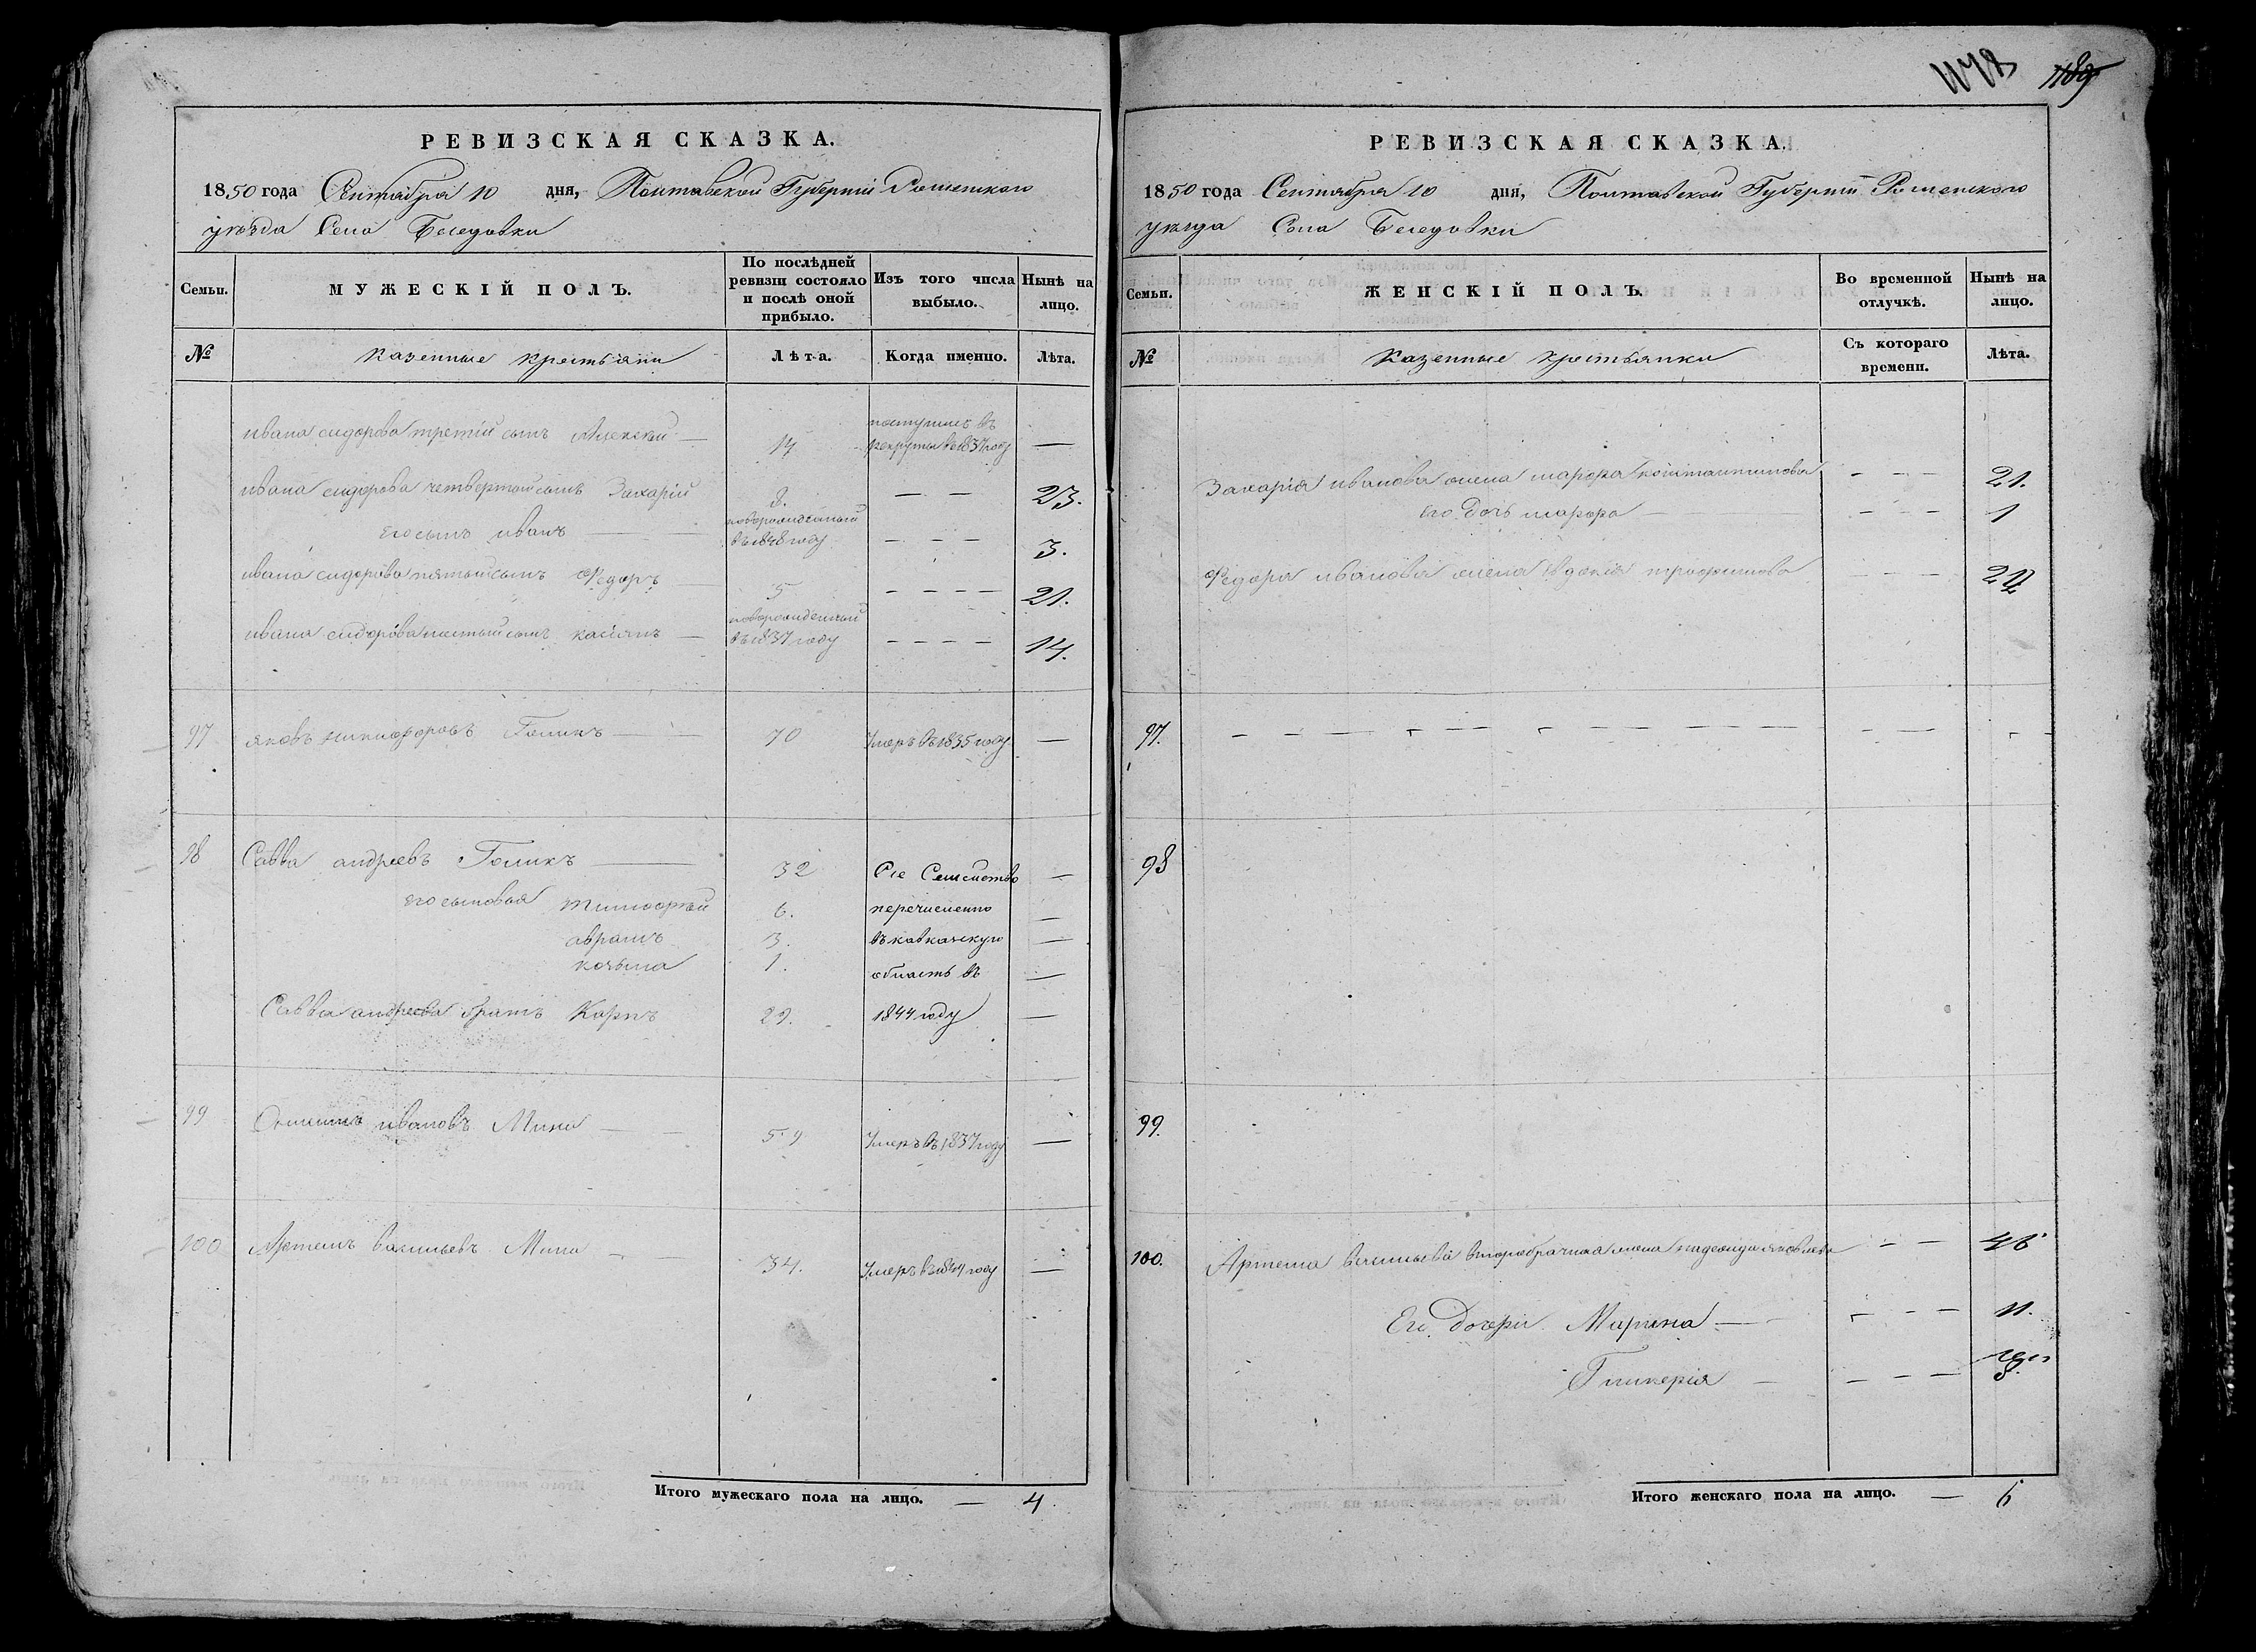 РЕВИЗСКАЯ СКАЗКА.
1850 года Сентября 10 дня, Полтавской Губерніи Роменского
уезда Села Беседовки
Семьи. МУЖЕСКІЙ ПОЛЪ. По послѣдней ревизіи состояло и послѣ оной прибыло. Изъ того числа выбыло. Нынѣ на лицо.
№ Казенные крестьяни Лѣта. Когда именно. Лѣта.
ивана сидорова третій сынъ Алексей — 14 поступилъ въ рекруты въ 1837 году —
ивана сидорова четвертый сынъ Захарій 8. — — 23.
его сынъ иванъ — новорожденный въ 1848 году — — — 3.
ивана сидорова пятый сынъ Федоръ 5 — — — — 21.
ивана сидорова шестый сынъ касіянъ — новорожденный въ 1837 году — — — — 14.
97 яковъ никифоровъ Голикъ — — 70 Умеръ въ 1835 году —
98 Савва андреевъ Голикъ — 32 Сіе Семейство —
его сыновья тимофей 6. перечисленно —
аврамъ 3. въ кавказскую —
козьма 1. область въ —
Савва андреева братъ Карпъ 29. 1844 году —
99 ивановъ Мина — — 59 Умеръ въ 1837 году —
100 Артемъ васильевъ Мина — — 34. Умеръ въ 1844 году —
Итого мужескаго пола на лицо. — 4.
1178 1189
РЕВИЗСКАЯ СКАЗКА.
1850 года Сентября 10 дня, Полтавской Губерніи Роменского
уезда Села Беседовки
Семьи. ЖЕНСКІЙ ПОЛЪ. Во временной отлучкѣ. Нынѣ на лицо.
№ Казенные крестьянки Съ котораго времени. Лѣта.
Захарія иванова жена марфа константинова — — — 21.
его дочь марфа — — — — 1
Федора иванова жена Евдокія трофимова — — —
97. — — — — — — — — — — —
98
99.
100. Артема васильева второбрачная жена надежда яковлева — — 46
Его дочери Марина — — — — 11.
Гликерія — — — —
Итого женскаго пола на лицо. — 6